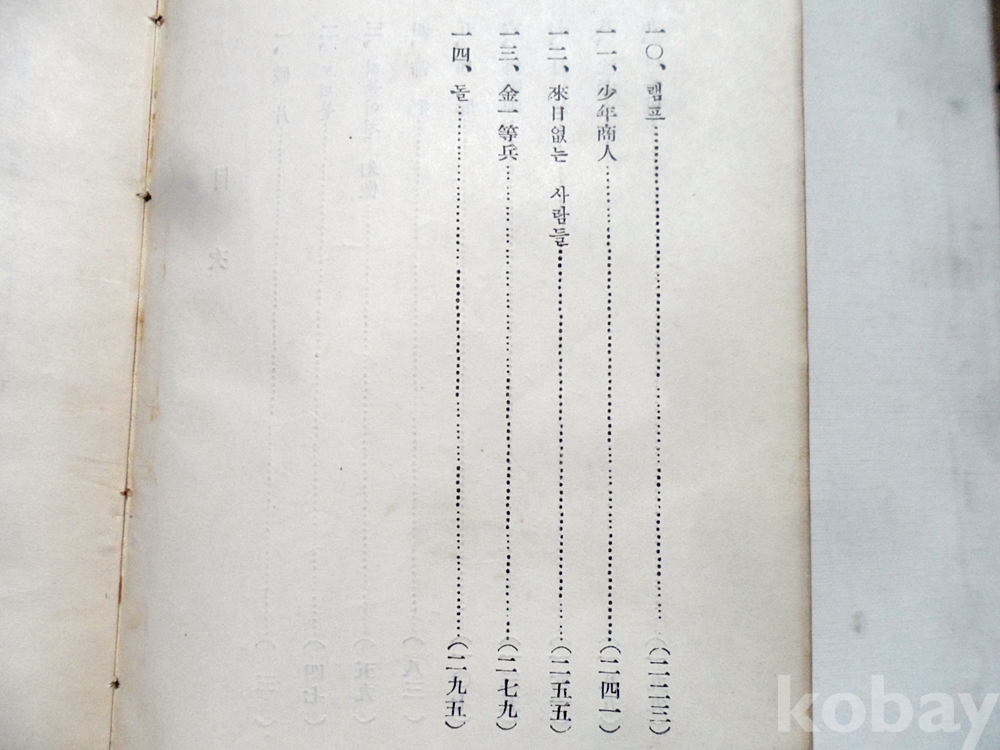 一〇、램프……(二二三)
一一、少年商人……(二四一)
一二、來日없는 사람들……(二五五)
一三、金一等兵……(二七九)
一四、돌……(二九五)
目次
kobay